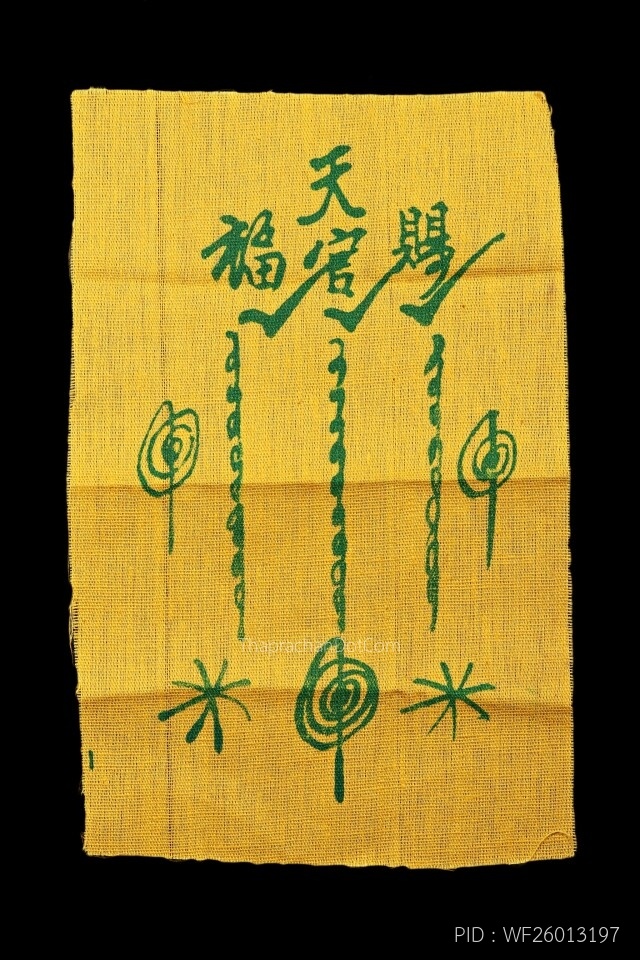 天
福官賜
Thaprachan2of.Com
PID : WF26013197